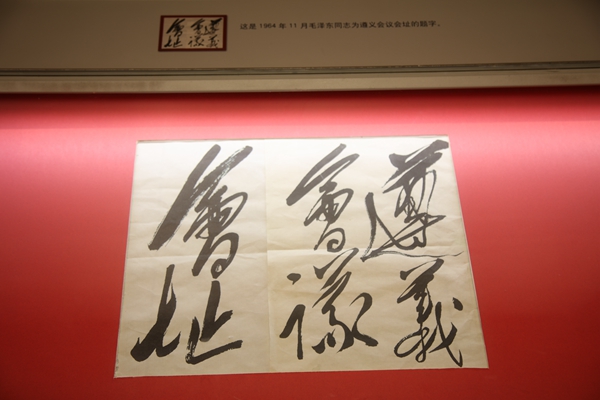 遵義
會議
會址
这是 1964 年 11 月毛泽东同志为遵义会议会址的题字。
遵義
會議
會址